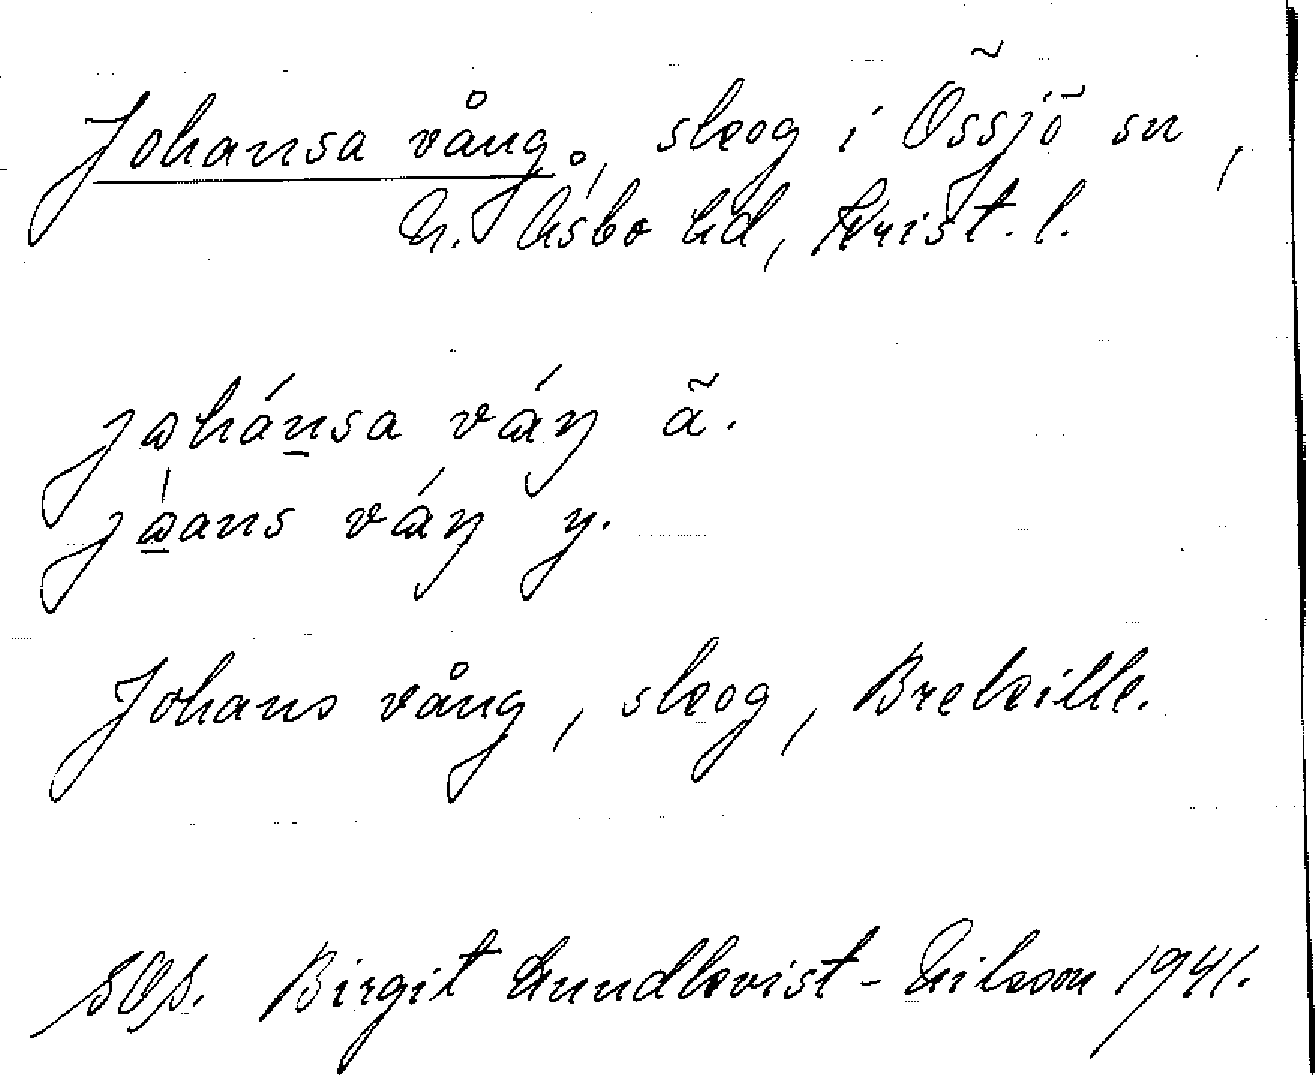 Johansa vång, skog i Össjö sn,
N. Åsbo hd, Krist. l.
johánsa váŋ ä.
jòans váŋ y.
Johans vång, skog, Brekille.
SOS. Birgit Lundkvist-Nilsson 1941.